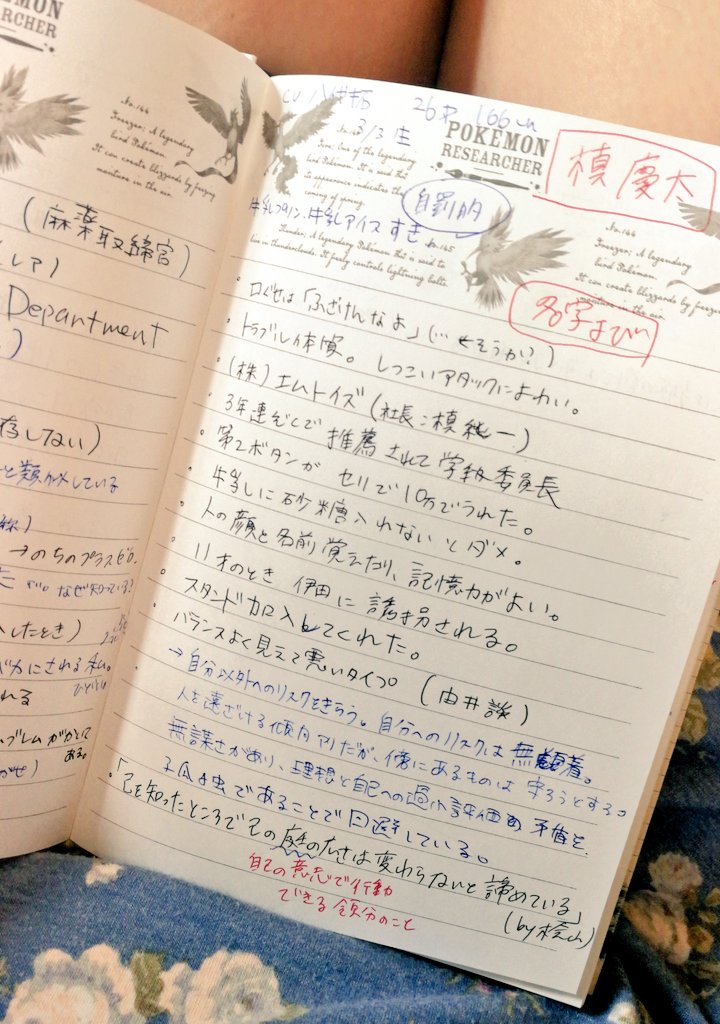 POKÉMON
RESEARCHER
No.144
Freezer; A legendary
bird Pokémon.
It can create blizzards by freezing
moisture in the air.
(麻薬取締官)
レア)
Department
存しない)
と類似している
→のちのプラスゼロ
なぜ知っている?
したとき)
バカにされる私。
れる
ブレムがかくして
ある。
CV 八代拓 26才 166cm
3/3生
POKÉMON
RESEARCHER
槙慶太
自罰的
牛乳プリン、牛乳アイス すき
No.145
Thunder; A legendary Pokémon that is said to
live in thunderclouds. It freely controls lightning bolts.
No.144
Freezer; A legendary
bird Pokémon.
It can create blizzards by freezing
moisture in the air.
名字よび
・口ぐせは「ふざけんなよ」(…そうか?)
・トラブル体質。しつこいアタックによわい。
・(株)エムトイズ(社長:槙統一)
・3年連ぞくで推薦されて学級委員長
・第2ボタンがセリで10万でうれた。
・牛乳に砂糖入れないとダメ。
・人の顔と名前覚えたり、記憶力がよい。
・11才のとき 伊田に誘拐される。
・スタンド加入してくれた。
・バランスよく見えて悪いタイプ (由井談)
→自分以外へのリスクをきらう。自分へのリスクは無頓着。
人を遠ざける傾向アリだが、傍にあるものは守ろうとする。
無謀さがあり、理想と自己への過小評価の矛盾を
孤独であることで回避している。
・「己を知ったところでその庭の広さは変わらないと諦めている」
(by 桧山)
自己の意志で行動
できる領分のこと